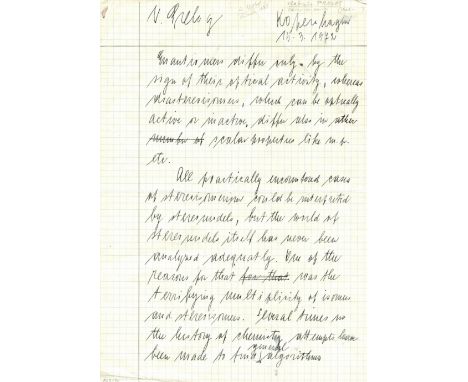 V. Prelog
Kopenhagen
15.3.1973
Enantiomers differ only by the
sign of their optical activity, whereas
diastereoisomers, which can be optically
active or inactive, differ also in other
number of scalar properties like m.p.
etc.
All practically encountered cases
of stereoisomerism could be interpreted
by stereomodels, but the world of
stereomodels itself has never been
analyzed adequatly. One of the
reasons for that for that was the
terrifying multiplicity of isomers
and stereoisomers. Several times in
the history of chemistry, attempts have
been made to find general algorithms